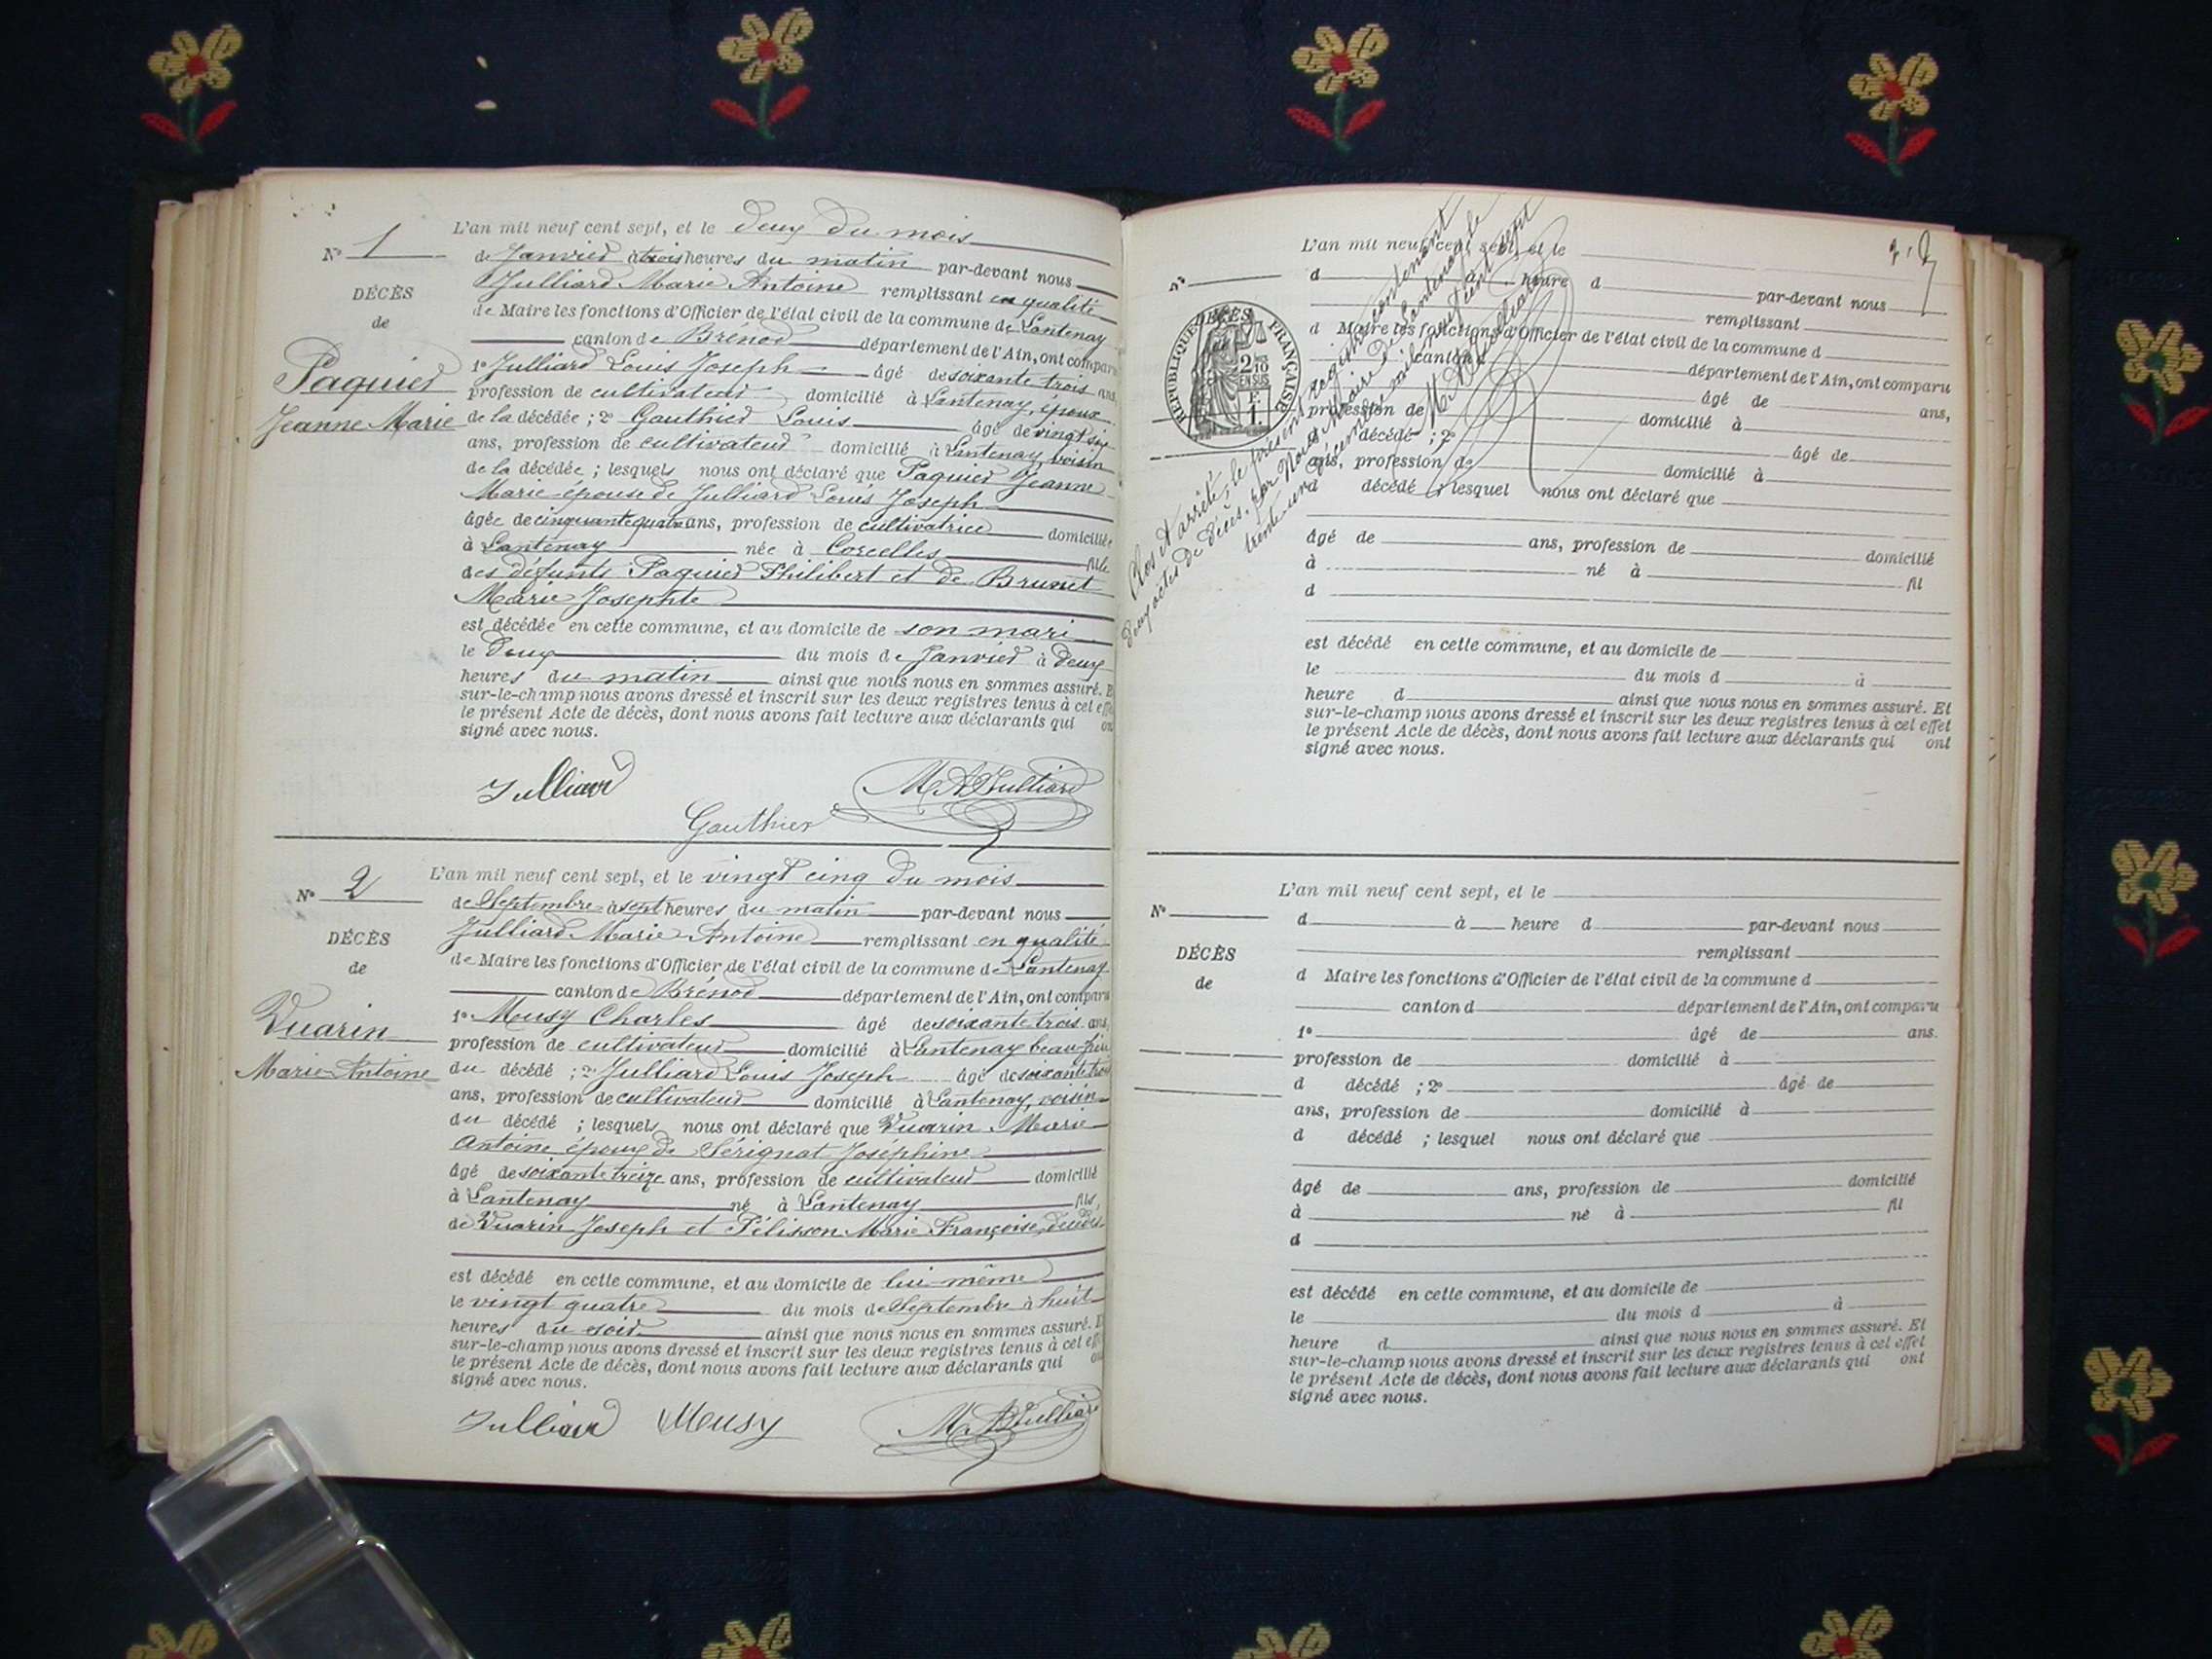 L'an mil neuf cent sept, et le deux du mois
N° 1
de Janvier à trois heures du matin par-devant nous
Julliard Marie Antoine remplissant en qualité
DÉCÈS
de Maire les fonctions d'Officier de l'état civil de la commune de Lantenay
de
canton de Brénod département de l'Ain, ont comparu
Paquier
1° Julliard Louis Joseph âgé de soixante trois ans,
profession de cultivateur domicilié à Lantenay, époux
Jeanne Marie
de la décédée ; 2° Gauthier Louis âgé de vingt six
ans, profession de cultivateur domicilié à Lantenay, voisin
de la décédée ; lesquels nous ont déclaré que Paquier Jeanne
Marie épouse de Julliard Louis Joseph
âgée de cinquante quatre ans, profession de cultivatrice domiciliée
à Lantenay née à Corcelles fille
des défunts Paquier Philibert et de Brunet
Marie Josephte
est décédée en cette commune, et au domicile de son mari
le deux du mois de Janvier à deux
heures du matin ainsi que nous nous en sommes assuré. Et
sur-le-champ nous avons dressé et inscrit sur les deux registres tenus à cet effet
le présent Acte de décès, dont nous avons fait lecture aux déclarants qui ont
signé avec nous.
Julliard
M A Julliard
Gauthier
L'an mil neuf cent sept, et le vingt cinq du mois
N° 2
de Septembre à sept heures du matin par-devant nous
Julliard Marie Antoine remplissant en qualité
DÉCÈS
de Maire les fonctions d'Officier de l'état civil de la commune de Lantenay
de
canton de Brénod département de l'Ain, ont comparu
Vuarin
1° Meusy Charles âgé de soixante trois ans,
profession de cultivateur domicilié à Lantenay beau-frère
Marie-Antoine
du décédé ; 2° Julliard Louis Joseph âgé de soixante trois
ans, profession de cultivateur domicilié à Lantenay, voisin
du décédé ; lesquels nous ont déclaré que Vuarin Marie
Antoine époux de Sérignat Joséphine
âgé de soixante treize ans, profession de cultivateur domicilié
à Lantenay né à Lantenay fils
de Vuarin Joseph et Pélisson Marie Françoise, décédés
est décédé en cette commune, et au domicile de lui-même
le vingt quatre du mois de Septembre à huit
heures du soir ainsi que nous nous en sommes assuré. Et
sur-le-champ nous avons dressé et inscrit sur les deux registres tenus à cet effet
le présent Acte de décès, dont nous avons fait lecture aux déclarants qui ont
signé avec nous.
Julliard Meusy M A Julliard
L'an mil neuf cent sept, et le
N°
d à heure d par-devant nous
remplissant
DÉCÈS
RÉPUBLIQUE FRANÇAISE
2/10 EN SUS
F. 1
d Maire les fonctions d'Officier de l'état civil de la commune d
canton d département de l'Ain, ont comparu
âgé de ans,
profession de domicilié à
décédé ; 2° âgé de
ans, profession de domicilié à
d décédé ; lesquel nous ont déclaré que
âgé de ans, profession de domicilié
à né à fil
d
est décédé en cette commune, et au domicile de
le du mois d à
heure d ainsi que nous nous en sommes assuré. Et
sur-le-champ nous avons dressé et inscrit sur les deux registres tenus à cet effet
le présent Acte de décès, dont nous avons fait lecture aux déclarants qui ont
signé avec nous.
Clos et arrêté, le présent registre contenant
deux actes de décès, par Nous Maire de Lantenay, le
trente un décembre mil neuf cent sept
M A Julliard
L'an mil neuf cent sept, et le
N°
d à heure d par-devant nous
remplissant
DÉCÈS
d Maire les fonctions d'Officier de l'état civil de la commune d
de
canton d département de l'Ain, ont comparu
1° âgé de ans.
profession de domicilié à
d décédé ; 2° âgé de
ans, profession de domicilié à
d décédé ; lesquel nous ont déclaré que
âgé de ans, profession de domicilié
à né à fil
d
est décédé en cette commune, et au domicile de
le du mois d à
heure d ainsi que nous nous en sommes assuré. Et
sur-le-champ nous avons dressé et inscrit sur les deux registres tenus à cet effet
le présent Acte de décès, dont nous avons fait lecture aux déclarants qui ont
signé avec nous.